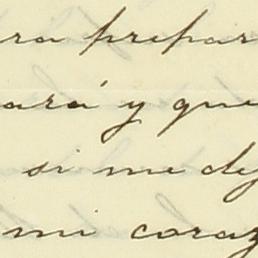 ra prepar
ará y que
si me dej
mi coraz